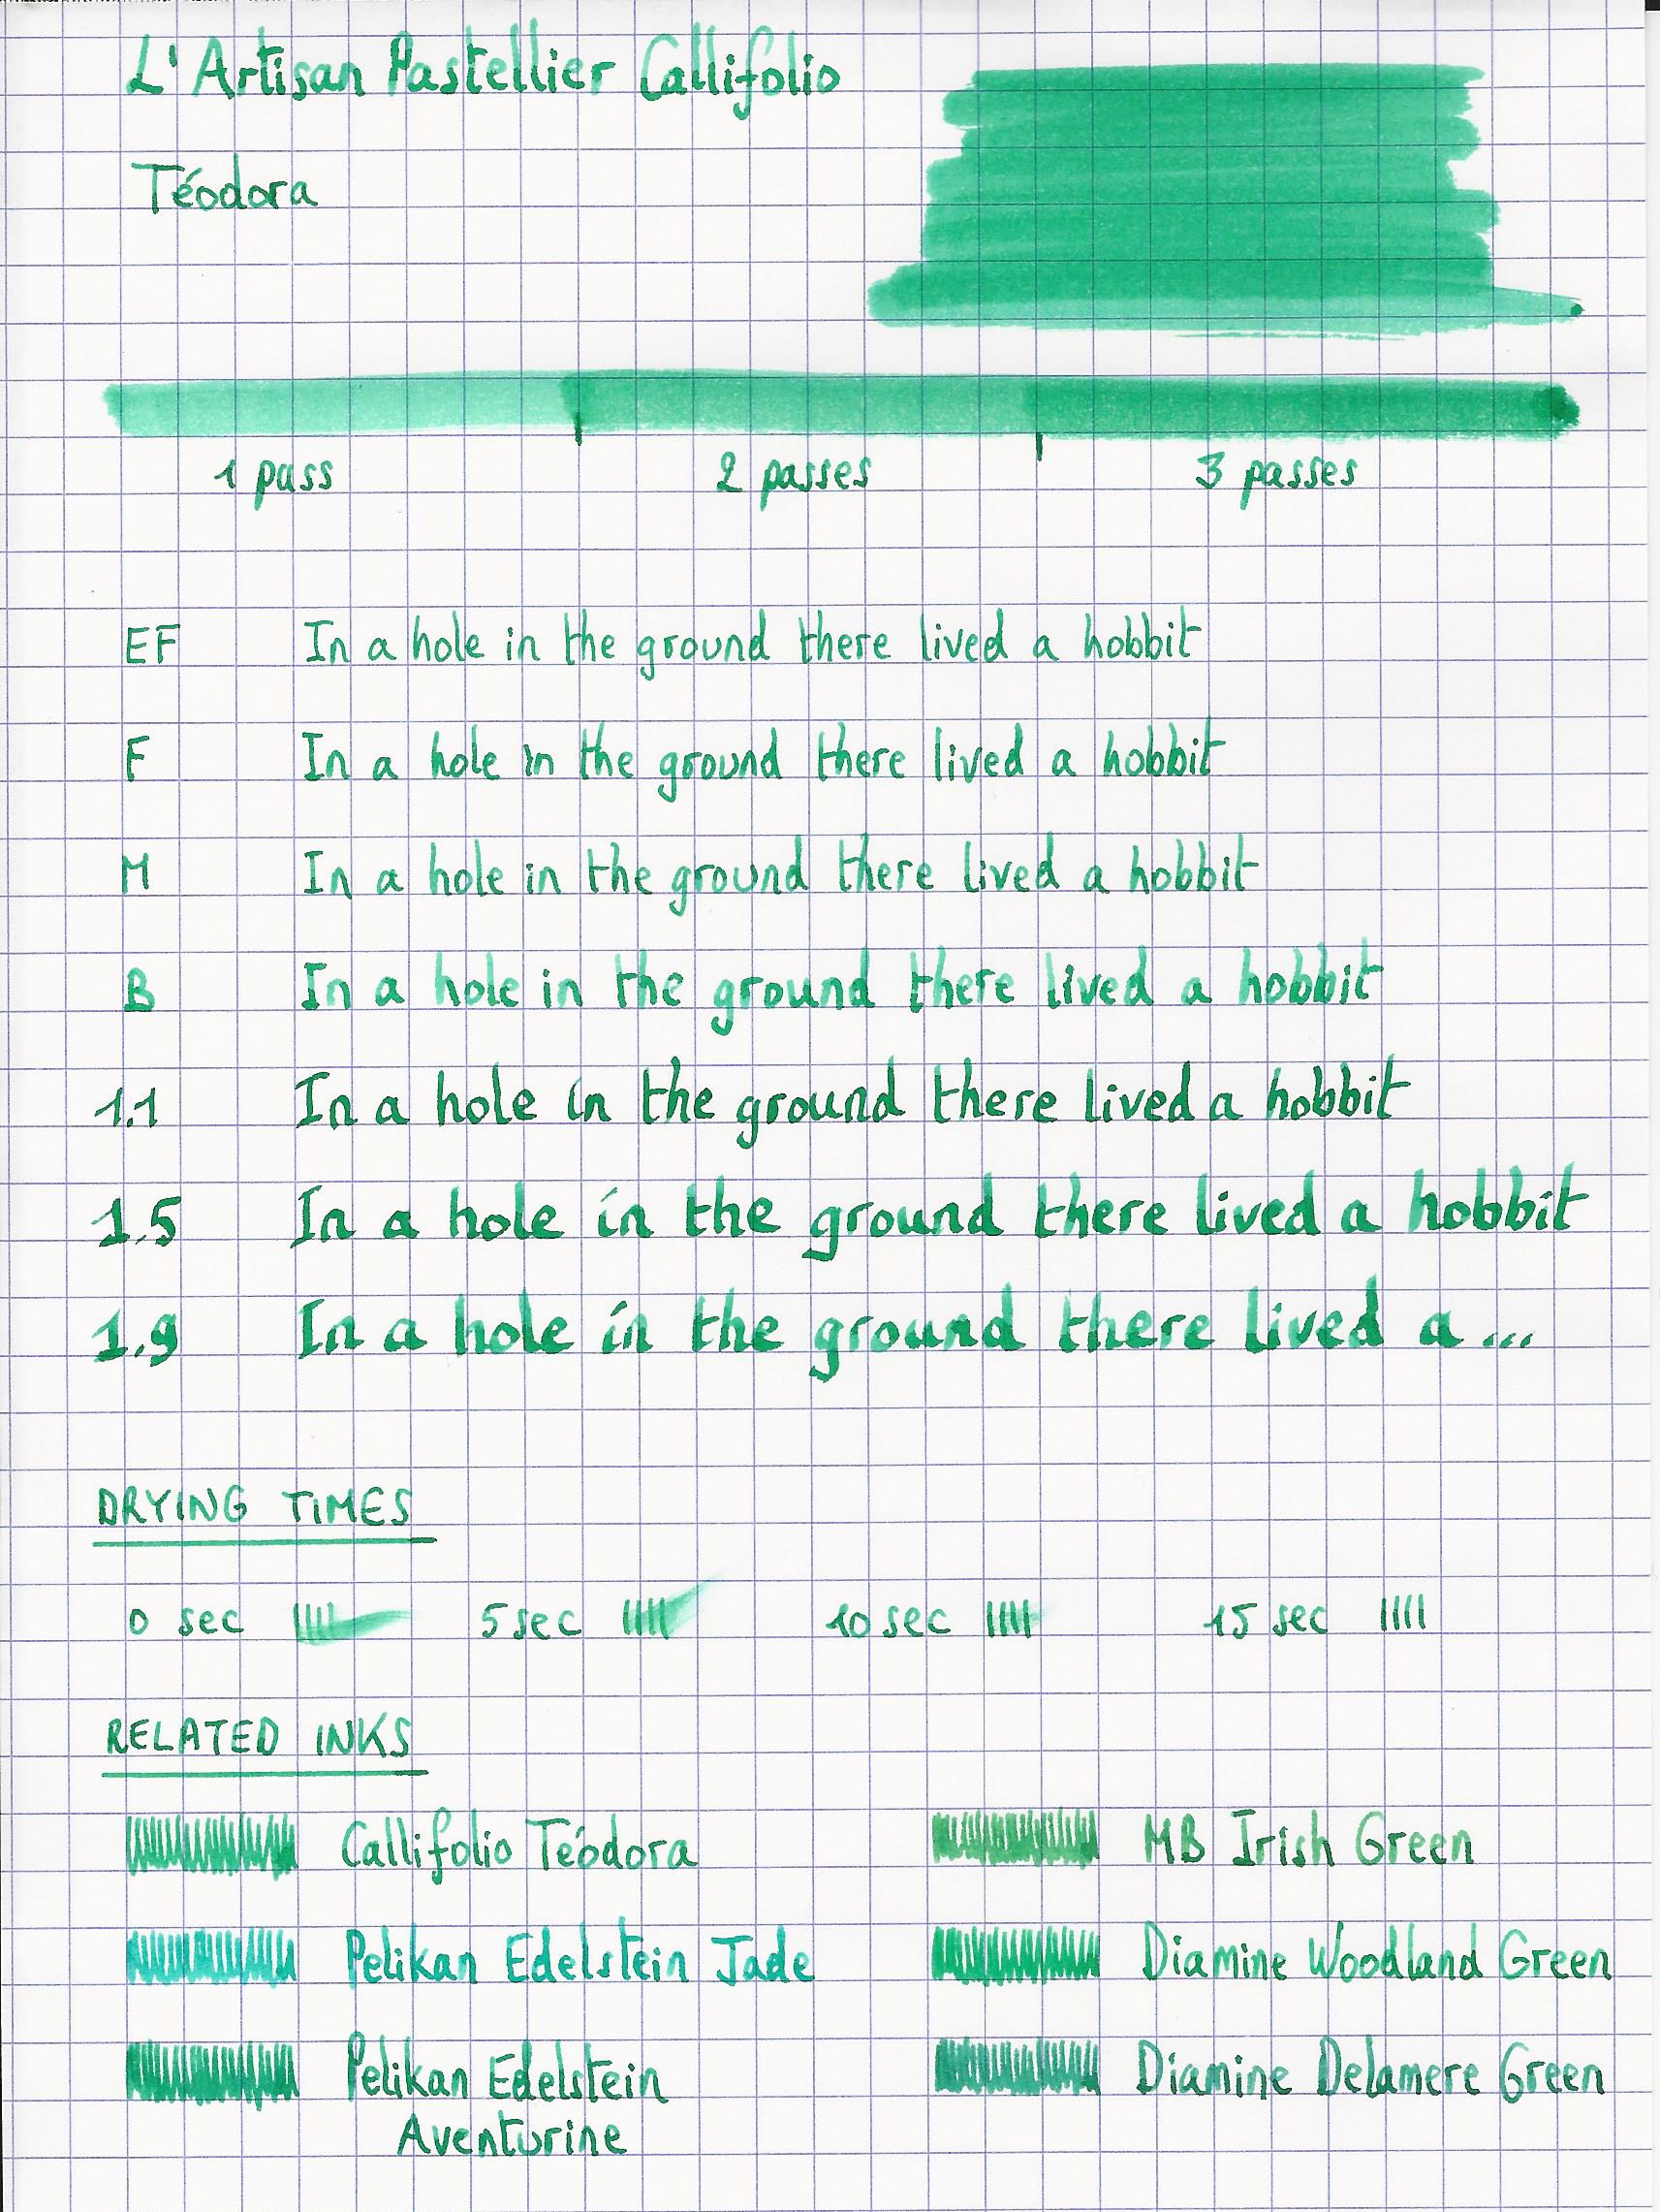 L'Artisan Pastellier Callifolio
Téodora
1 pass 2 passes 3 passes
EF In a hole in the ground there lived a hobbit
F In a hole in the ground there lived a hobbit
M In a hole in the ground there lived a hobbit
B In a hole in the ground there lived a hobbit
1.1 In a hole in the ground there lived a hobbit
1.5 In a hole in the ground there lived a hobbit
1.9 In a hole in the ground there lived a...
DRYING TIMES
0 sec 5 sec 10 sec 15 sec
RELATED INKS
Callifolio Téodora MB Irish Green
Pelikan Edelstein Jade Diamine Woodland Green
Pelikan Edelstein Diamine Delamere Green
Aventurine